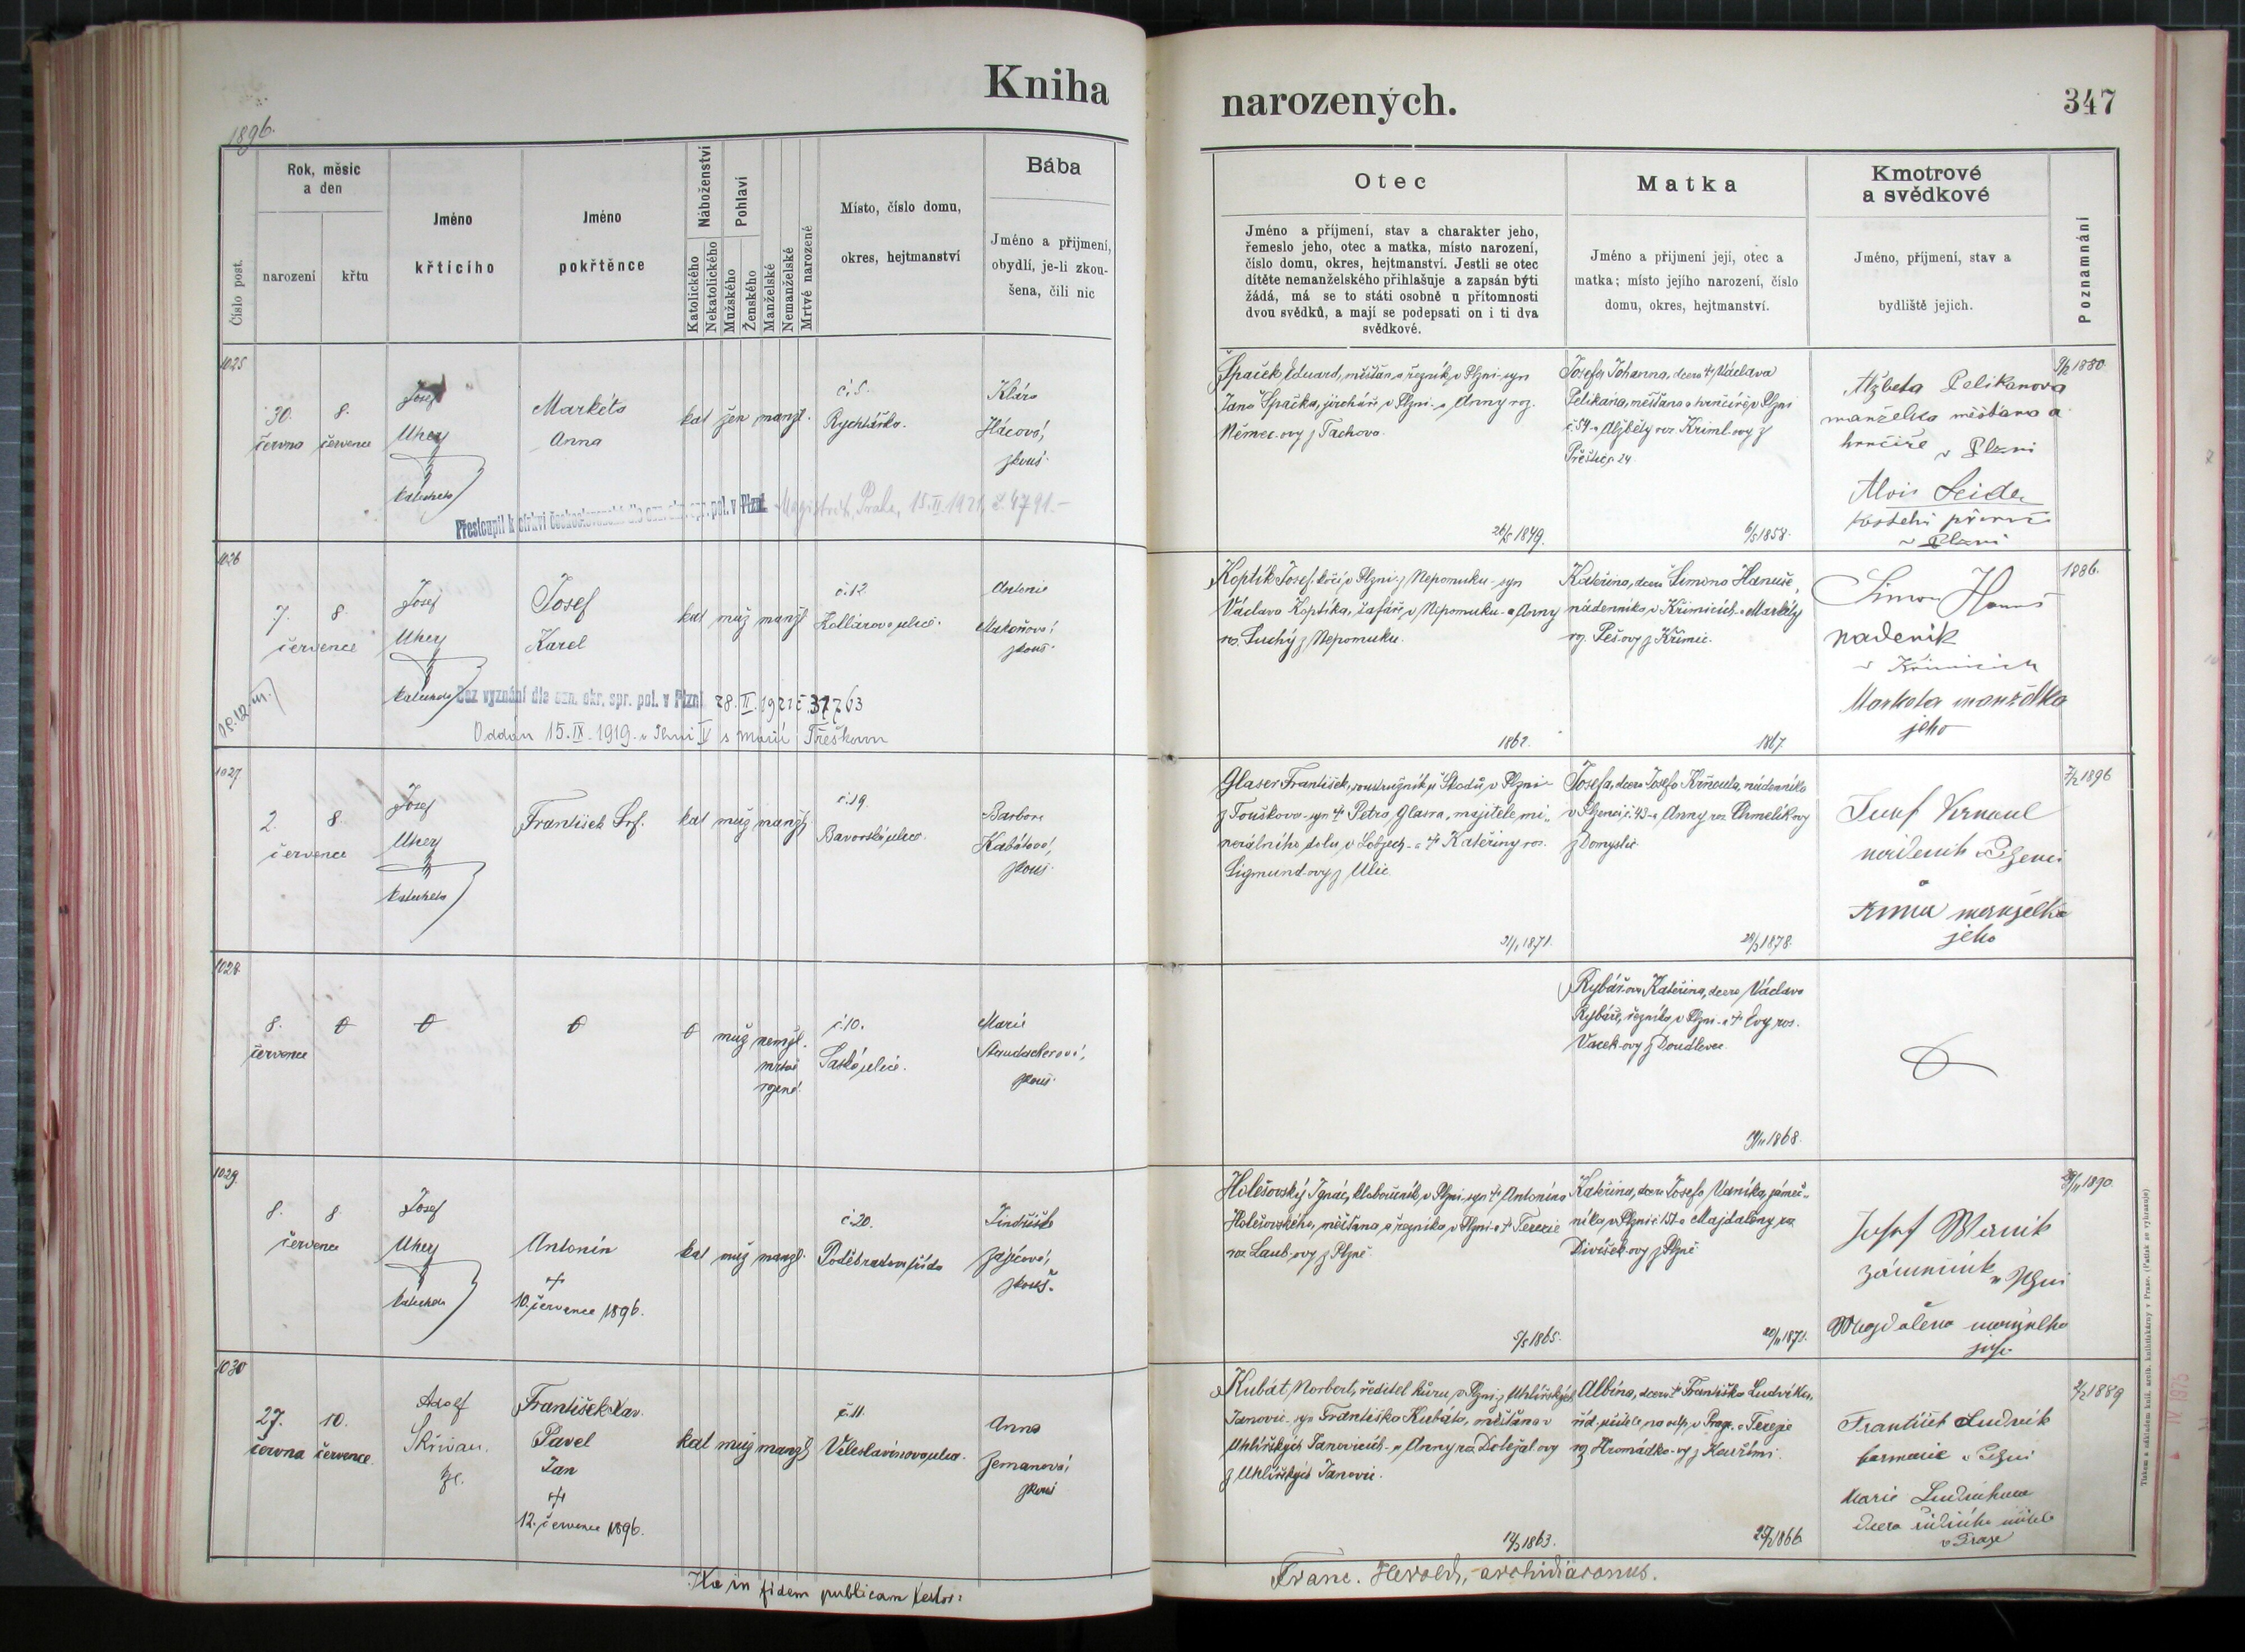 Kniha
narozených.
347
1896.
Číslo post.
Rok, měsíc
a den
narození
křtu
Jméno
křtícího
Jméno
pokřtěnce
Náboženství
Katolického
Nekatolického
Pohlaví
Mužského
Ženského
Manželské
Nemanželské
Mrtvě narozené
Místo, číslo domu,
okres, hejtmanství
Bába
Jméno a příjmení,
obydlí, je-li zkou-
šena, čili nic
Otec
Jméno a příjmení, stav a charakter jeho,
řemeslo jeho, otec a matka, místo narození,
číslo domu, okres, hejtmanství. Jestli se otec
dítěte nemanželského přihlašuje a zapsán býti
žádá, má se to státi osobně u přítomnosti
dvou svědků, a mají se podepsati on i ti dva
svědkové.
Matka
Jméno a příjmení její, otec a
matka; místo jejího narození, číslo
domu, okres, hejtmanství.
Kmotrové
a svědkové
Jméno, příjmení, stav a
bydliště jejich.
Poznamnání
1025
30.
června
8.
července
Josef
Uher
katecheta
Markéta
Anna
kat žen manž.
č. 5.
Rychtářka.
Klára
Hácová,
zkouš.
Přestoupil k církvi československé dle ozn. okr. spr. pol. v Plzni Magistrát, Praha, 15.II.1921, č. 4791.-
Špaček Eduard, měšťan a řezník v Plzni syn
Jana Špačka, jircháře v Plzni a Anny roz.
Němec-ovy z Tachova.
26/5 1849.
Josefa Johanna, dcera † Václava
Pelikána, měšťana a hrnčíře v Plzni
č. 54 a Alžběty roz. Kriml-ovy z
Přeštic 24
6/5 1858.
Alžbeta Pelikanova
manželka měšťana a
hrnčíře v Plzni
Alois Seidl
v Plzni
9/2 1880.
1026
7.
8.
července
Josef
Uher
katecheta
Josef
Karel
kat muž manž.
č. 12.
Kollárova ulice.
Antonie
Makoňová,
zkouš.
Bez vyznání dle ozn. okr. spr. pol. v Plzni 28.II.1921 č. 37763
Oddán 15.IX.1919 v Plzni s Marií Třeškovou
Koptík Josef, kočí v Plzni z Nepomuku - syn
Václava Koptíka, šafáře v Nepomuku - a Anny
roz. Suchý z Nepomuku.
1862.
Kateřina, dcera Šimona Hanuše,
nádenníka v Křimicích a Markéty
roz. Peš-ovy z Křimic.
1867.
Simon Hanuš
nadeník
v Křimicích
Marketa manželka
jeho
1886.
1027
2.
8.
července
Josef
Uher
katecheta
František Srf.
kat muž manž.
č. 19.
Bavorská ulice.
Barbora
Kabátová,
zkouš.
Glaser František, soustružník u Škodů v Plzni
z Touškova - syn † Petra Glasra, majitele mi-
nerálního dolu v Lobzech - a † Kateřiny roz.
Sigmund-ovy z Ulic.
31/1 1871.
Josefa, dcera Josefa Krňoula, nádenníka
v Plzenci č. 43 a Anny roz. Chmelíkovy
z Domyslic
1878.
Josef Krnoul
nádeník v Plzenci
Anna manželka
jeho
7/2 1896
1028.
8.
července
muž nemžl.
mrtvě
rozené.
č. 10.
Saská ulice.
Marie
Staudacherová,
zkouš.
Rybář-ova Kateřina, dcera Václava
Rybáře, řezníka v Plzni - a † Evy roz.
Vacek-ovy z Doudlevec.
1868.
1029.
8.
8.
července
Josef
Uher
katecheta
Antonín
†
10. července 1896.
kat muž manž.
č. 20.
Poděbradova třída
Jindřiška
Zajícová,
zkouš.
Holešovský Ignác, kloboučník v Plzni, syn † Antonína
Holešovského, měšťana a řezníka v Plzni a † Terezie
roz. Laub-ovy z Plzně
5/5 1865.
Kateřina, dcera Josefa Vaníka, zámeč-
níka v Plzni č. 151 a Majdaleny roz.
Divíšek-ovy z Plzně
20/11 1871.
Josef Wanik
zámečník v Plzni
Magdalena manželka
jeho
1890.
1030
27.
června
10.
července
Adolf
Skřivan.
František Xav.
Pavel
Jan
†
12. července 1896.
kat muž manž.
č. 11.
Veleslavínova ulice.
Anna
Zemanová,
zkouš
Kubát Norbert, ředitel kůru v Plzni z Uhlířských
Janovic - syn Františka Kubáta, měšťana v
Uhlířských Janovicích - a Anny roz. Doležal-ovy
z Uhlířských Janovic.
1863.
Albína, dcera † Františka Ludvíka,
říd. učitele na odp. v Praze a Terezie
roz. Hromádko-vy z Kouřimi.
1866
František Ludvík
v Plzni
Marie Ludvíkova
dcera řídícího učitele
v Praze
2/2 1889
Ita in fidem publicam testor:
Franc. Herold, archidiaconus.